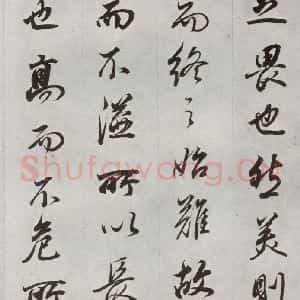 足畏也然美則
而終之始難故
而不溢所以長
也高而不危所
Shufawang.Cn